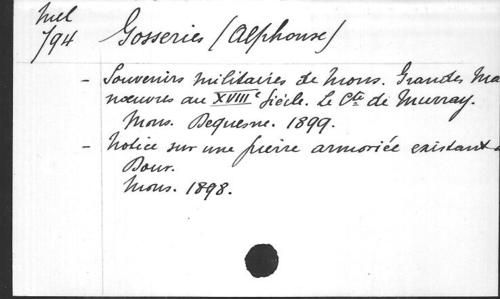 Mél
/94
Gosseries (Alphonse)
- Souvenirs militaires de Mons. Grandes Ma
nœuvres au XVIIIe Siècle. Le Cte de Murray.
Mons. Dequesne. 1899.
- Notice sur une pierre armoriée existant à
Dour.
Mons. 1898.